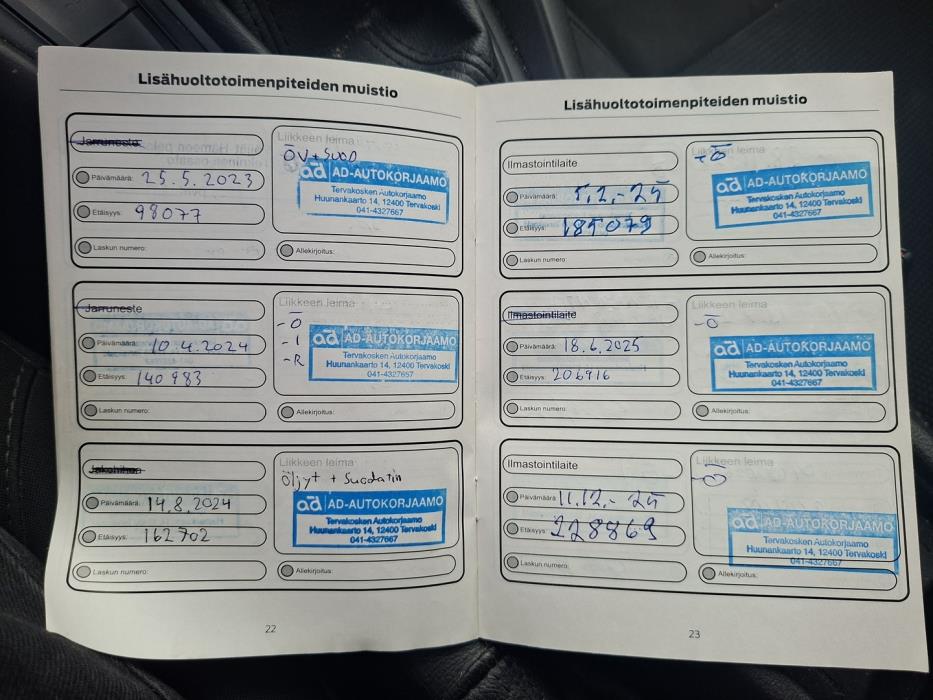 Lisähuoltotoimenpiteiden muistio
Jarruneste
Päivämäärä: 25.5.2023
Etäisyys: 98077
Laskun numero:
Liikkeen leima
ÖV + SUOD
ad AD-AUTOKORJAAMO
Tervakosken Autokorjaamo
Huunankaarto 14, 12400 Tervakoski
041-4327667
Allekirjoitus:
Jarruneste
Päivämäärä: 10.4.2024
Etäisyys: 140983
Laskun numero:
Liikkeen leima
-Ö
-I
-R
ad AD-AUTOKORJAAMO
Tervakosken Autokorjaamo
Huunankaarto 14, 12400 Tervakoski
041-4327667
Allekirjoitus:
Päivämäärä: 14.8.2024
Etäisyys: 162702
Laskun numero:
Liikkeen leima
Öljyt + Suodatin
ad AD-AUTOKORJAAMO
Tervakosken Autokorjaamo
Huunankaarto 14, 12400 Tervakoski
041-4327667
Allekirjoitus:
22
Lisähuoltotoimenpiteiden muistio
Ilmastointilaite
Päivämäärä: 5.2.-25
Etäisyys: 185079
Laskun numero:
Liikkeen leima
-Ö
ad AD-AUTOKORJAAMO
Tervakosken Autokorjaamo
Huunankaarto 14, 12400 Tervakoski
041-4327667
Allekirjoitus:
Ilmastointilaite
Päivämäärä: 18.6.2025
Etäisyys: 206916
Laskun numero:
Liikkeen leima
-Ö
ad AD-AUTOKORJAAMO
Tervakosken Autokorjaamo
Huunankaarto 14, 12400 Tervakoski
041-4327667
Allekirjoitus:
Ilmastointilaite
Päivämäärä: 11.12.-25
Etäisyys: 228869
Laskun numero:
Liikkeen leima
-Ö
ad AD-AUTOKORJAAMO
Tervakosken Autokorjaamo
Huunankaarto 14, 12400 Tervakoski
041-4327667
Allekirjoitus:
23